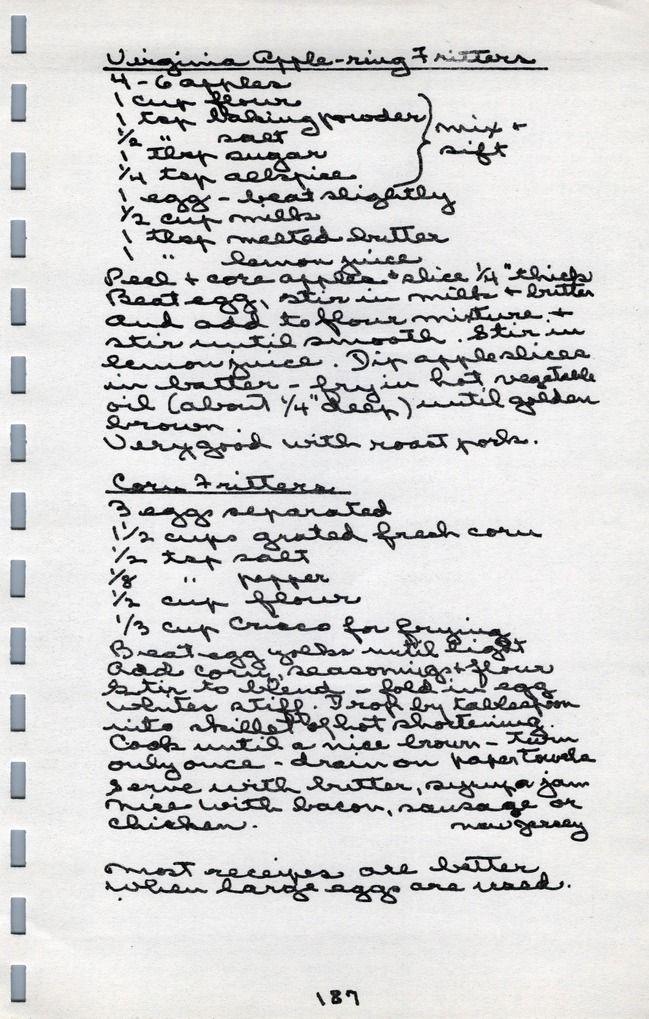 Virginia Apple-ring Fritters
4-6 apples
1 cup flour
1 tsp baking powder
1/2 " salt
1 tbsp sugar
1/4 tsp allspice
mix +
sift
1 egg - beat slightly
1/2 cup milk
1 tbsp melted butter
1 " lemon juice
Peel + core apples + slice 1/4" thick
Beat egg, stir in milk + butter
And add to flour mixture +
stir until smooth. Stir in
lemon juice. Dip apple slices
in batter - fry in hot vegetable
oil (about 1/4" deep) until golden
brown.
Very good with roast pork.
Corn Fritters
3 eggs separated
1 1/2 cups grated fresh corn
1/2 tsp salt
1/8 " pepper
1/2 cup flour
1/3 cup Crisco for frying
Beat egg yolks until light
Add corn, seasonings + flour
Stir to blend - fold in egg
whites stiff. Drop by tablespoon
into skillet of hot shortening.
Cook until a nice brown - turn
only once - drain on paper towels
Serve with butter, syrup or jam
Nice with bacon, sausage or
chicken. New Jersey
Most receipes are better
when large eggs are used.
187